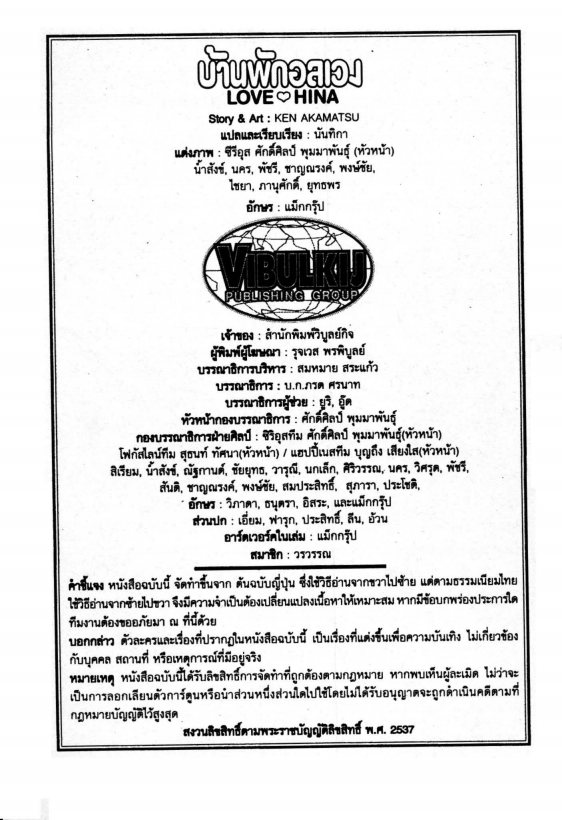 บ้านพักอลเวง
LOVE♡HINA
Story & Art : KEN AKAMATSU
แปลและเรียบเรียง : นันทิกา
แต่งภาพ : ซีรีอุส ศักดิ์ศิลป์ พุมมาพันธุ์ (หัวหน้า)
น้ำสังข์, นคร, พัชรี, ชาญณรงค์, พงษ์ชัย,
ไชยา, ภานุศักดิ์, ยุทธพร
อักษร : แม็กกรุ๊ป
VIBULKIJ
PUBLISHING GROUP
เจ้าของ : สำนักพิมพ์วิบูลย์กิจ
ผู้พิมพ์ผู้โฆษณา : รุจเวส พรพิบูลย์
บรรณาธิการบริหาร : สมหมาย สระแก้ว
บรรณาธิการ : บ.ก.ภรต ศรนาท
บรรณาธิการผู้ช่วย : ยูริ, อู๊ด
หัวหน้ากองบรรณาธิการ : ศักดิ์ศิลป์ พุมมาพันธุ์
กองบรรณาธิการฝ่ายศิลป์ : ซีริอุสทีม ศักดิ์ศิลป์ พุมมาพันธุ์(หัวหน้า)
โฟกัสไลน์ทีม สุธนท์ ทัศนา(หัวหน้า) / แฮปปี้เนสทีม บุญถึง เสียงใส(หัวหน้า)
สิเรียม, น้ำสังข์, ณัฐกานต์, ชัยยุทธ, วารุณี, นกเล็ก, ศิริวรรณ, นคร, วิศรุต, พัชรี,
สันติ, ชาญณรงค์, พงษ์ชัย, สมประสิทธิ์, สุภารา, ประโชติ,
อักษร : วิภาดา, ธนุตรา, อิสระ, และแม็กกรุ๊ป
ส่วนปก : เอี่ยม, ฟารุก, ประสิทธิ์, ลีน, อ้วน
อาร์ตเวอร์คในเล่ม : แม็กกรุ๊ป
สมาชิก : วรวรรณ
คำชี้แจง หนังสือฉบับนี้ จัดทำขึ้นจาก ต้นฉบับญี่ปุ่น ซึ่งใช้วิธีอ่านจากขวาไปซ้าย แต่ตามธรรมเนียมไทย
ใช้วิธีอ่านจากซ้ายไปขวา จึงมีความจำเป็นต้องเปลี่ยนแปลงเนื้อหาให้เหมาะสม หากมีข้อบกพร่องประการใด
ทีมงานต้องขออภัยมา ณ ที่นี้ด้วย
บอกกล่าว ตัวละครและเรื่องที่ปรากฏในหนังสือฉบับนี้ เป็นเรื่องที่แต่งขึ้นเพื่อความบันเทิง ไม่เกี่ยวข้อง
กับบุคคล สถานที่ หรือเหตุการณ์ที่มีอยู่จริง
หมายเหตุ หนังสือฉบับนี้ได้รับลิขสิทธิ์การจัดทำที่ถูกต้องตามกฎหมาย หากพบเห็นผู้ละเมิด ไม่ว่าจะ
เป็นการลอกเลียนตัวการ์ตูนหรือนำส่วนหนึ่งส่วนใดไปใช้โดยไม่ได้รับอนุญาตจะถูกดำเนินคดีตามที่
กฎหมายบัญญัติไว้สูงสุด
สงวนลิขสิทธิ์ตามพระราชบัญญัติลิขสิทธิ์ พ.ศ. 2537